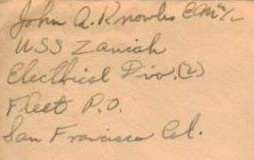 John A. Knowles EM 2/c
USS Zaniah
Electrical Div. (2)
Fleet P.O.
San Francisco Cal.